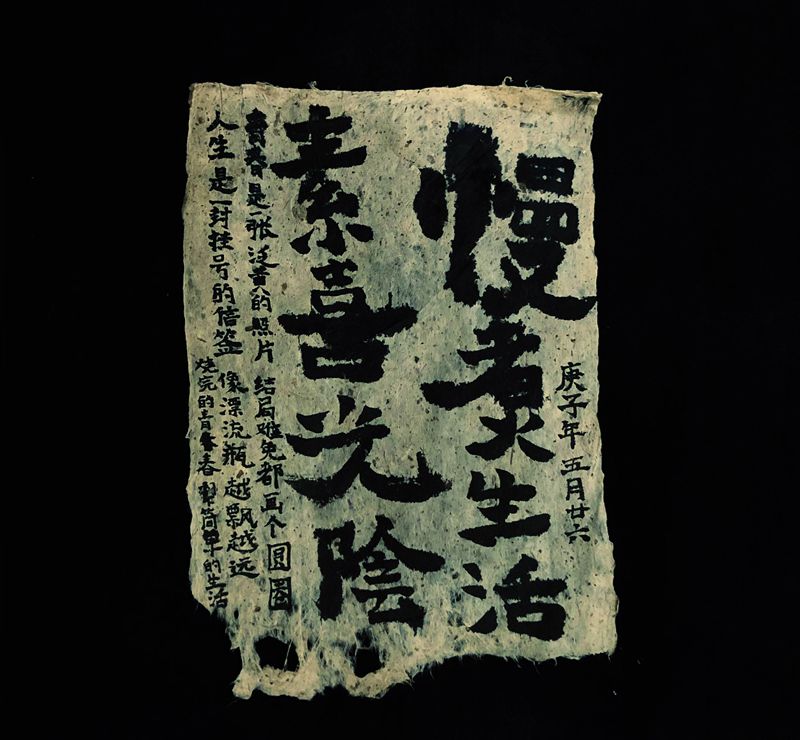 庚子年 五月廿六
慢煮生活
素喜光陰
青春是一张泛黄的照片 结局难免都画个圆圈
人生是一封挂号的信签 像漂流瓶越飘越远
烧完的青春 简单的生活